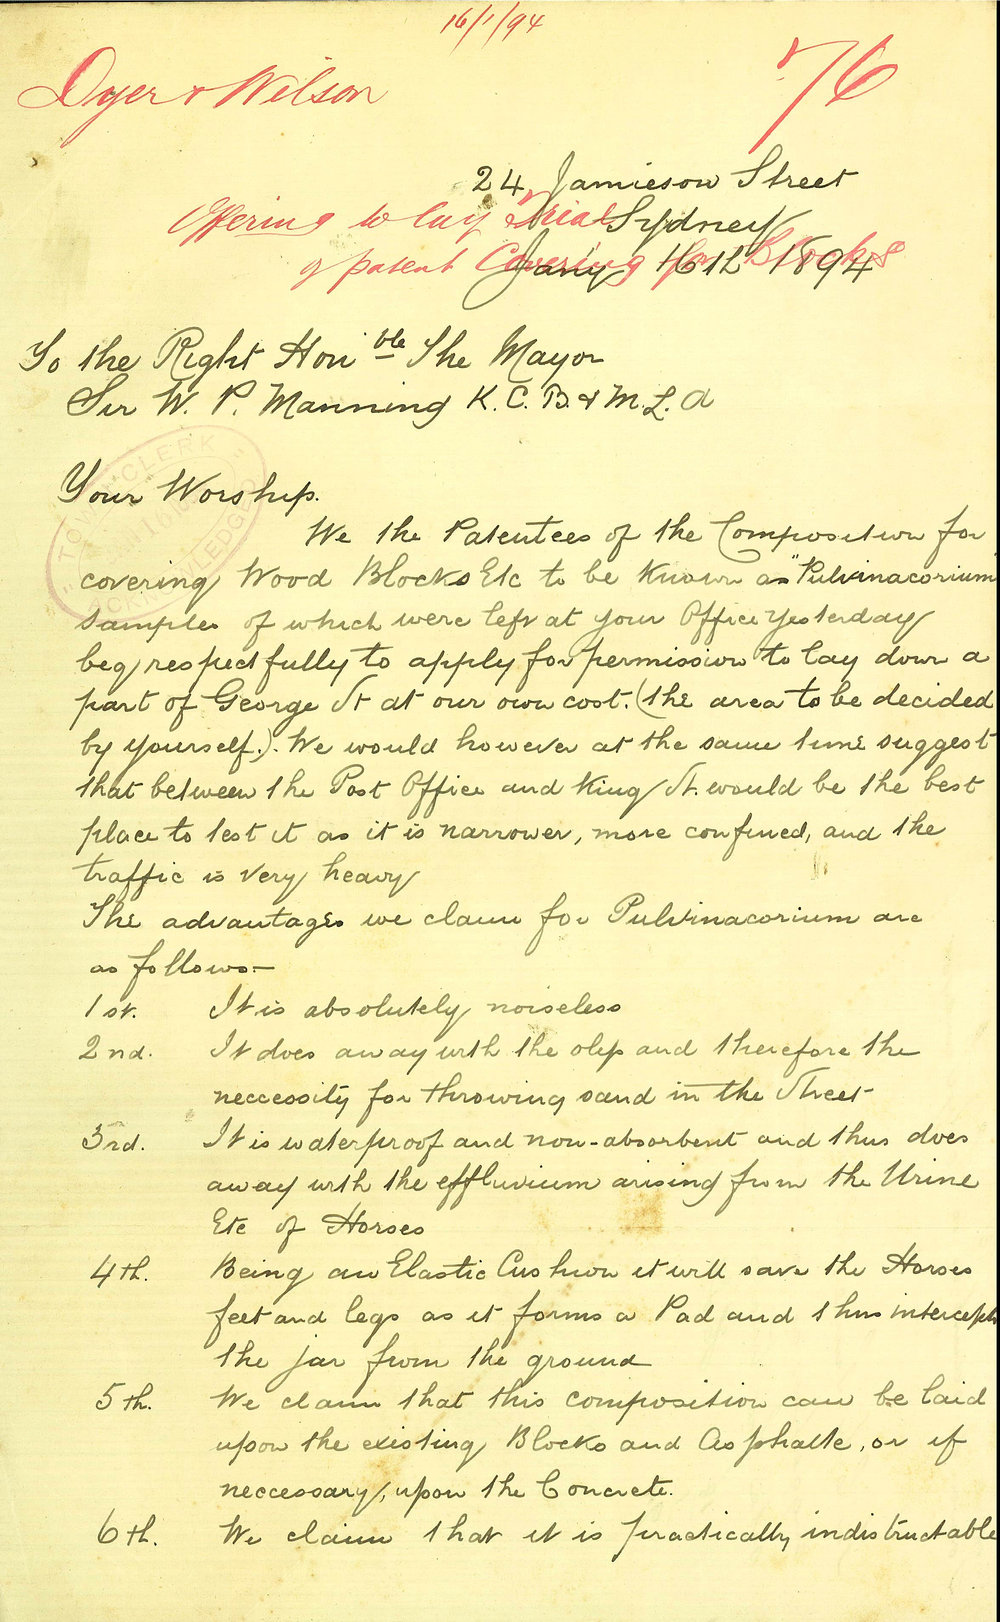 16/1/94
76
Dyer & Wilson
24 Jamieson Street
Offering to lay trial
Sydney
of patent Covering for Blocks
Jany 16th 1894
To the Right Honble The Mayor
Sir W. P. Manning K. C. B. & M. L. A
TOWN CLERK
ACKNOWLEDGED
Your Worship.
We the Patentees of the Composition for
covering Wood Blocks Etc to be known as "Pulvinacorium"
samples of which were left at your Office yesterday
beg respectfully to apply for permission to lay down a
part of George St at our own cost. (the area to be decided
by yourself.). We would however at the same time suggest
that between the Post Office and King St. would be the best
place to test it as it is narrower, more confined, and the
traffic is very heavy
The advantages we claim for Pulvinacorium are
as follows:-
1st. It is absolutely noiseless
2nd. It does away with the slip and therefore the
neccessity for throwing sand in the Street
3rd. It is waterproof and non-absorbent and thus does
away with the effluvium arising from the Urine
Etc of Horses
4th. Being an Elastic Cushion it will save the Horses
feet and legs as it forms a Pad and thus intercepts
the jar from the ground
5th. We claim that this composition can be laid
upon the existing Blocks and Asphalte, or if
neccessary, upon the Concrete.
6th. We claim that it is practically indistructable